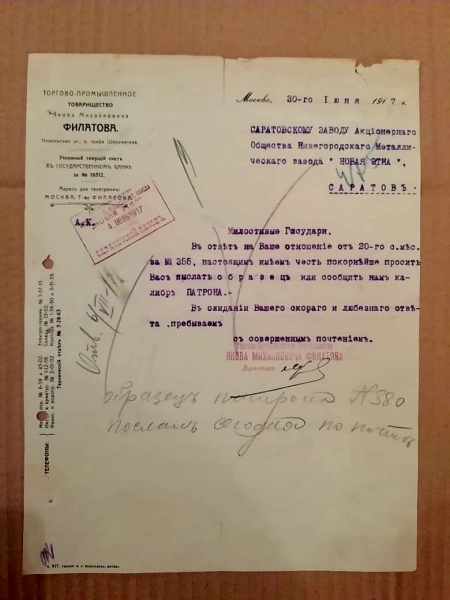 ТОРГОВО-ПРОМЫШЛЕННОЕ
ТОВАРИЩЕСТВО
Якова Михайловича
ФИЛАТОВА.
Никольская ул., д. графа Шереметева.
Условный текущий счетъ
ВЪ ГОСУДАРСТВЕННОМЪ БАНКѢ
за № 19512.
Адресъ для телеграммъ:
МОСКВА, Т-во ФИЛАТОВА.
Москва, 30-го Іюня 1917 г.
САРАТОВСКОМУ ЗАВОДУ Акціонернаго
Общества Нижегородскаго Металли-
ческаго завода " НОВАЯ ЭТНА ",
САРАТОВЪ.
А.К.
4 ІЮЛЬ 1917
САРАТОВСКІЙ ЗАВОДЪ
Милостивые Государи.
Въ отвѣтъ на Ваше отношеніе отъ 20-го с.мѣс.
за № 356, настоящимъ имѣемъ честь покорнѣйше просить
Васъ выслать образецъ или сообщить намъ ка-
либръ ПАТРОНА.
Въ ожиданіи Вашего скораго и любезнаго отвѣ-
та ,пребываемъ
съ совершеннымъ почтеніемъ.
ЯКОВА МИХАЙЛОВИЧА ФИЛАТОВА
Директоръ
Отв. 6/VII-17
образецъ патрона №380
посланъ сегодня по почтѣ
ТЕЛЕФОНЫ:
Техническій отдѣлъ № 5-28-63